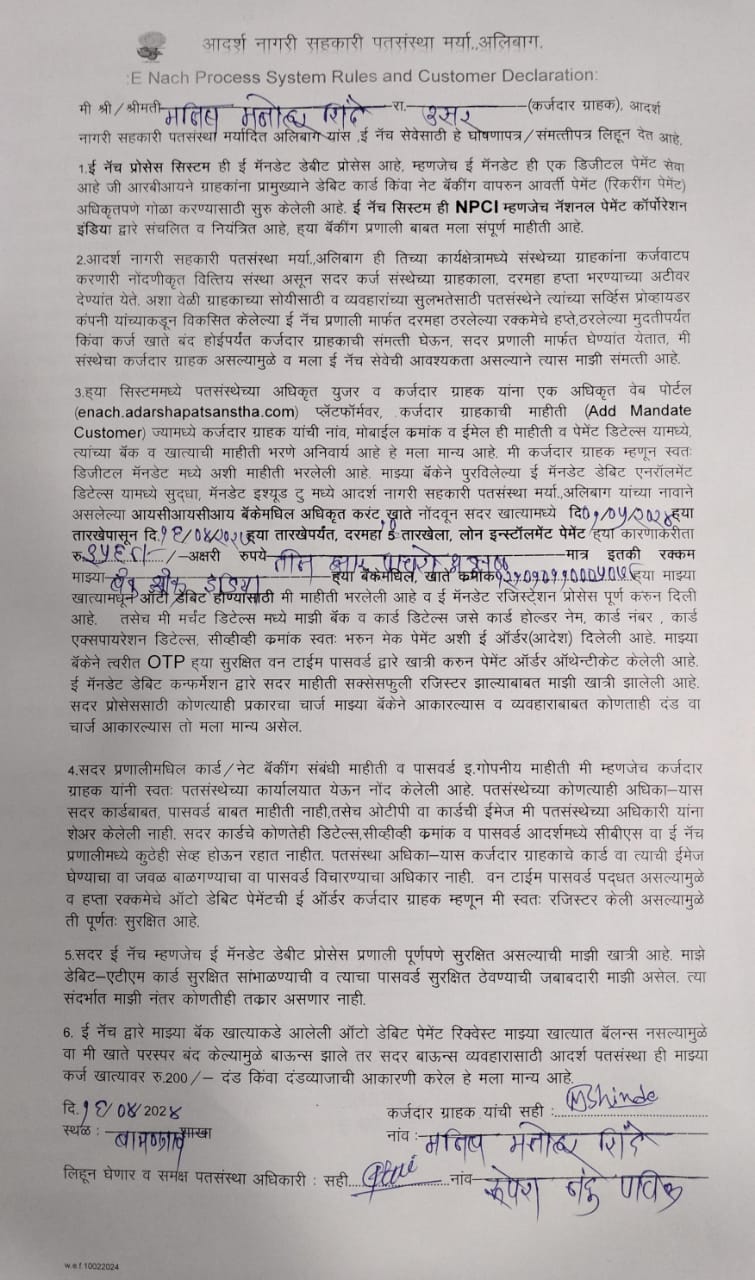 आदर्श नागरी सहकारी पतसंस्था मर्या.,अलिबाग.
:E Nach Process System Rules and Customer Declaration:
मी श्री/श्रीमती मनिष मनोहर शिंदे रा. उसर (कर्जदार ग्राहक), आदर्श
नागरी सहकारी पतसंस्था मर्यादित अलिबाग यांस ,ई नॅच सेवेसाठी हे घोषणापत्र/संमत्तीपत्र लिहून देत आहे,
1.ई नॅच प्रोसेस सिस्टम ही ई मॅनडेट डेबीट प्रोसेस आहे, म्हणजेच ई मॅनडेट ही एक डिजिटल पेमेंट सेवा
आहे जी आरबीआयने ग्राहकांना प्रामुख्याने डेबिट कार्ड किंवा नेट बॅकींग वापरुन आवर्ती पेमेंट (रिकरींग पेमेंट)
अधिकृतपणे गोळा करण्यासाठी सुरु केलेली आहे. ई नॅच सिस्टम ही NPCI म्हणजेच नॅशनल पेमेंट कॉर्पोरेशन
इंडिया द्वारे संचलित व नियंत्रित आहे, ह्या बॅकींग प्रणाली बाबत मला संपूर्ण माहीती आहे.
2.आदर्श नागरी सहकारी पतसंस्था मर्या.,अलिबाग ही तिच्या कार्यक्षेत्रामध्ये संस्थेच्या ग्राहकांना कर्जवाटप
करणारी नोंदणीकृत वित्तिय संस्था असून सदर कर्ज संस्थेच्या ग्राहकाला, दरमहा हप्ता भरण्याच्या अटीवर
देण्यांत येते. अशा वेळी ग्राहकाच्या सोयीसाठी व व्यवहारांच्या सुलभतेसाठी पतसंस्थेने त्यांच्या सर्व्हिस प्रोव्हायडर
कंपनी यांच्याकडून विकसित केलेल्या ई नॅच प्रणाली मार्फत दरमहा ठरलेल्या रक्कमेचे हप्ते,ठरलेल्या मुदतीपर्यंत
किंवा कर्ज खाते बंद होईपर्यंत कर्जदार ग्राहकाची संमत्ती घेऊन, सदर प्रणाली मार्फत घेण्यांत येतात, मी
संस्थेचा कर्जदार ग्राहक असल्यामुळे व मला ई नॅच सेवेची आवश्यकता असल्याने त्यास माझी संमत्ती आहे.
3.ह्या सिस्टममध्ये पतसंस्थेच्या अधिकृत युजर व कर्जदार ग्राहक यांना एक अधिकृत वेब पोर्टल
(enach.adarshapatsanstha.com) प्लॅटफॉर्मवर, कर्जदार ग्राहकाची माहीती (Add Mandate
Customer) ज्यामध्ये कर्जदार ग्राहक यांची नांव, मोबाईल क्रमांक व ईमेल ही माहीती व पेमेंट डिटेल्स यामध्ये,
त्यांच्या बॅक व खात्याची माहीती भरणे अनिवार्य आहे हे मला मान्य आहे. मी कर्जदार ग्राहक म्हणून स्वतः
डिजीटल मॅनडेट मध्ये अशी माहीती भरलेली आहे. माझ्या बॅकेने पुरविलेल्या ई मॅनडेट डेबिट एनरॉलमेंट
डिटेल्स यामध्ये सुद्धा, मॅनडेट इश्यूड टु मध्ये आदर्श नागरी सहकारी पतसंस्था मर्या.,अलिबाग यांच्या नावाने
असलेल्या आयसीआयसीआय बॅकेमधिल अधिकृत करंट खाते नोंदवून सदर खात्यामध्ये दि.01/05/2024 ह्या
तारखेपासून दि. ह्या तारखेपर्यंत, दरमहा तारखेला, लोन इन्स्टॉलमेंट पेमेंट ह्या कारणाकरीता
रु. /-अक्षरी रुपये तीन मात्र इतकी रक्कम
माझ्या बँक ऑफ इंडिया ह्या बॅकेमधिल, खाते क्रमांक ह्या माझ्या
खात्यामधून ऑटो डेबिट होण्यासाठी मी माहीती भरलेली आहे व ई मॅनडेट रजिस्ट्रेशन प्रोसेस पूर्ण करुन दिली
आहे. तसेच मी मर्चंट डिटेल्स मध्ये माझी बॅक व कार्ड डिटेल्स जसे कार्ड होल्डर नेम, कार्ड नंबर , कार्ड
एक्सपायरेशन डिटेल्स, सीव्हीव्ही क्रमांक स्वतः भरुन मेक पेमेंट अशी ई ऑर्डर(आदेश) दिलेली आहे. माझ्या
बॅकेने त्वरीत OTP ह्या सुरक्षित वन टाईम पासवर्ड द्वारे खात्री करुन पेमेंट ऑर्डर ऑथेन्टीकेट केलेली आहे.
ई मॅनडेट डेबिट कन्फर्मेशन द्वारे सदर माहीती सक्सेसफुली रजिस्टर झाल्याबाबत माझी खात्री झालेली आहे.
सदर प्रोसेससाठी कोणत्याही प्रकारचा चार्ज माझ्या बॅकेने आकारल्यास व व्यवहाराबाबत कोणताही दंड वा
चार्ज आकारल्यास तो मला मान्य असेल.
4.सदर प्रणालीमधिल कार्ड/नेट बॅकींग संबंधी माहीती व पासवर्ड इ.गोपनीय माहीती मी म्हणजेच कर्जदार
ग्राहक यांनी स्वतः पतसंस्थेच्या कार्यालयात येऊन नोंद केलेली आहे. पतसंस्थेच्या कोणत्याही अधिका-यास
सदर कार्डबाबत, पासवर्ड बाबत माहीती नाही,तसेच ओटीपी वा कार्डची ईमेज मी पतसंस्थेच्या अधिकारी यांना
शेअर केलेली नाही. सदर कार्डचे कोणतेही डिटेल्स,सीव्हीव्ही क्रमांक व पासवर्ड आदर्शमध्ये सीबीएस वा ई नॅच
प्रणालीमध्ये कुठेही सेव्ह होऊन रहात नाहीत. पतसंस्था अधिका-यास कर्जदार ग्राहकाचे कार्ड वा त्याची ईमेज
घेण्याचा वा जवळ बाळगण्याचा वा पासवर्ड विचारण्याचा अधिकार नाही. वन टाईम पासवर्ड पद्धत असल्यामुळे
व हप्ता रक्कमेचे ऑटो डेबिट पेमेंटची ई ऑर्डर कर्जदार ग्राहक म्हणून मी स्वतः रजिस्टर केली असल्यामुळे
ती पूर्णतः सुरक्षित आहे.
5.सदर ई नॅच म्हणजेच ई मॅनडेट डेबीट प्रोसेस प्रणाली पूर्णपणे सुरक्षित असल्याची माझी खात्री आहे. माझे
डेबिट-एटीएम कार्ड सुरक्षित सांभाळण्याची व त्याचा पासवर्ड सुरक्षित ठेवण्याची जबाबदारी माझी असेल. त्या
संदर्भात माझी नंतर कोणतीही तक्रार असणार नाही.
6. ई नॅच द्वारे माझ्या बॅक खात्याकडे आलेली ऑटो डेबिट पेमेंट रिक्वेस्ट माझ्या खात्यात बॅलन्स नसल्यामुळे
वा मी खाते परस्पर बंद केल्यामुळे बाऊन्स झाले तर सदर बाऊन्स व्यवहारासाठी आदर्श पतसंस्था ही माझ्या
कर्ज खात्यावर रु.200/- दंड किंवा दंडव्याजाची आकारणी करेल हे मला मान्य आहे.
दि.16/04/2024 कर्जदार ग्राहक यांची सही : MShinde
स्थळ : शाखा नांव: मनिष मनोहर शिंदे
लिहून घेणार व समक्ष पतसंस्था अधिकारी : सही नांव
w.e.f.10022024